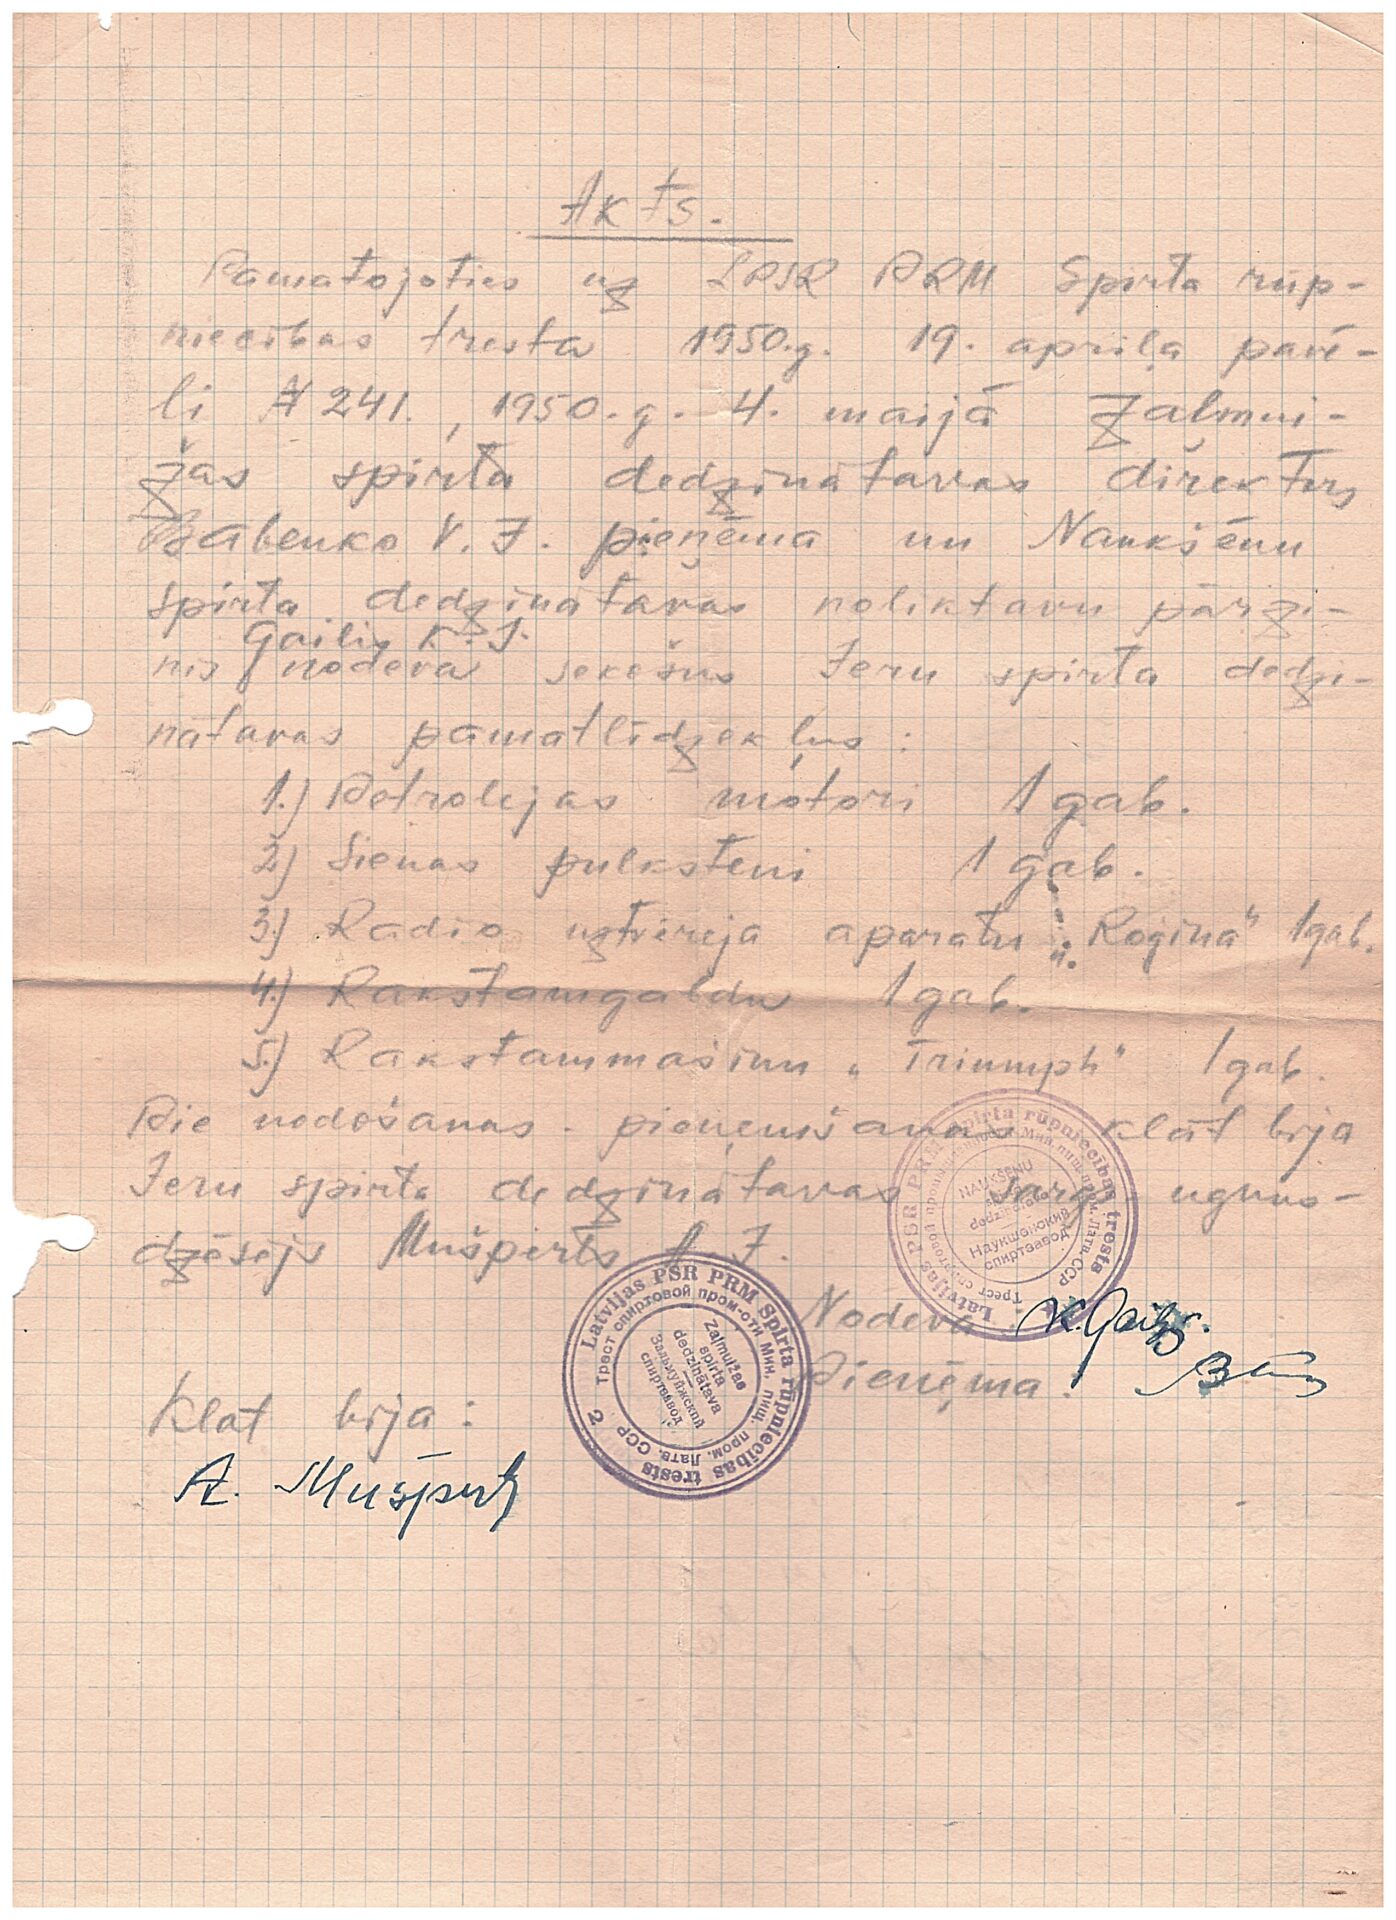 Akts.
Pamatojoties uz LPSR PRM Spirta rūp-
niecības tresta 1950.g. 19. apriļa pavē-
li № 241, 1950.g. 4. maijā Zaļmui-
žas spirta dedzinātavas direktors
Babenko V. I. pieņēma un Naukšēnu
spirta dedzinātavas noliktavu pārzi-
Gailis K. J.
nis nodeva sekošus Jeru spirta dedzi-
nātavas pamatlīdzekļus:
1.) Petrolejas motori 1 gab.
2.) Sienas pulksteni 1 gab.
3.) Radio uztvērēja aparatu „Rogina" 1 gab.
4.) Rakstamgaldu 1 gab.
5.) Rakstammašinu „Triumph" 1 gab.
Pie nodošanas - pieņemšanas klāt bija
Jeru spirta dedzinātavas sargs uguns-
dzēsējs Mušperts A. J.
Nodeva: K. Gailis.
Pieņēma:
Klāt bija:
A. Mušpert
Latvijas PSR PRM Spirta rūpniecības trests
Трест спиртовой пром-сти Мин. пищ. пром. Латв. ССР
NAUKŠĒNU
spirta
dedzinātava
Наукшенский
спиртзавод
Latvijas PSR PRM Spirta rūpniecības trests
Трест спиртовой пром-сти Мин. пищ. пром. Латв. ССР 2
Zaļmuižas
spirta
dedzinātava
Зальмуйжский
спиртзавод